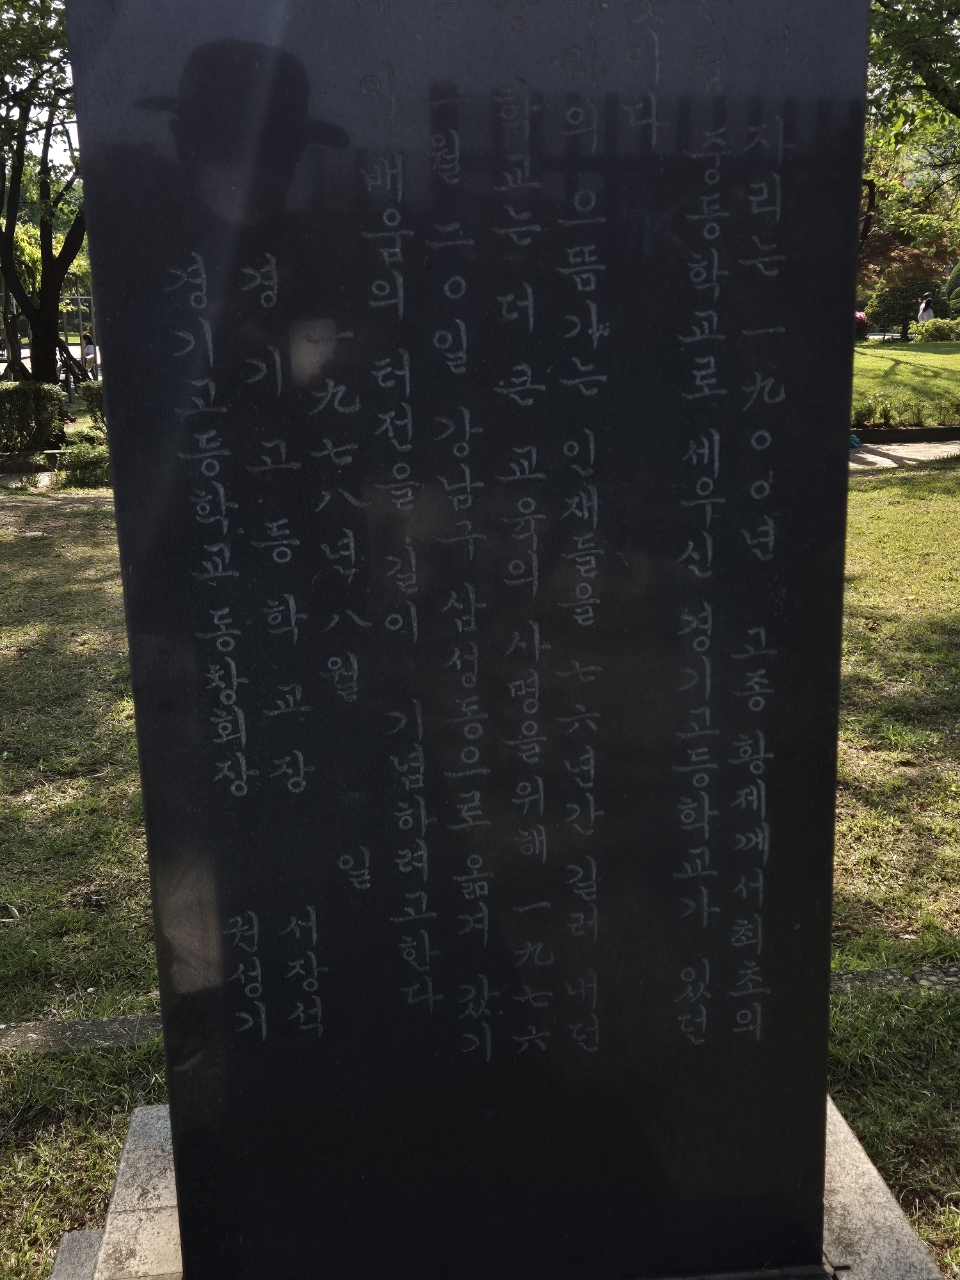 이 자리는 一九○○년 고종 황제께서 최초의
중등학교로 세우신 경기고등학교가 있던
이다
의 으뜸가는 인재들을 七六년간 길러내던
학교는 더 큰 교육의 사명을 위해 一九七六
월 二○일 강남구 삼성동으로 옮겨 갔기
이 배움의 터전을 길이 기념하려고한다
一九七八년 八월 일
경기고등학교장 서장석
경기고등학교 동창회장 권성기